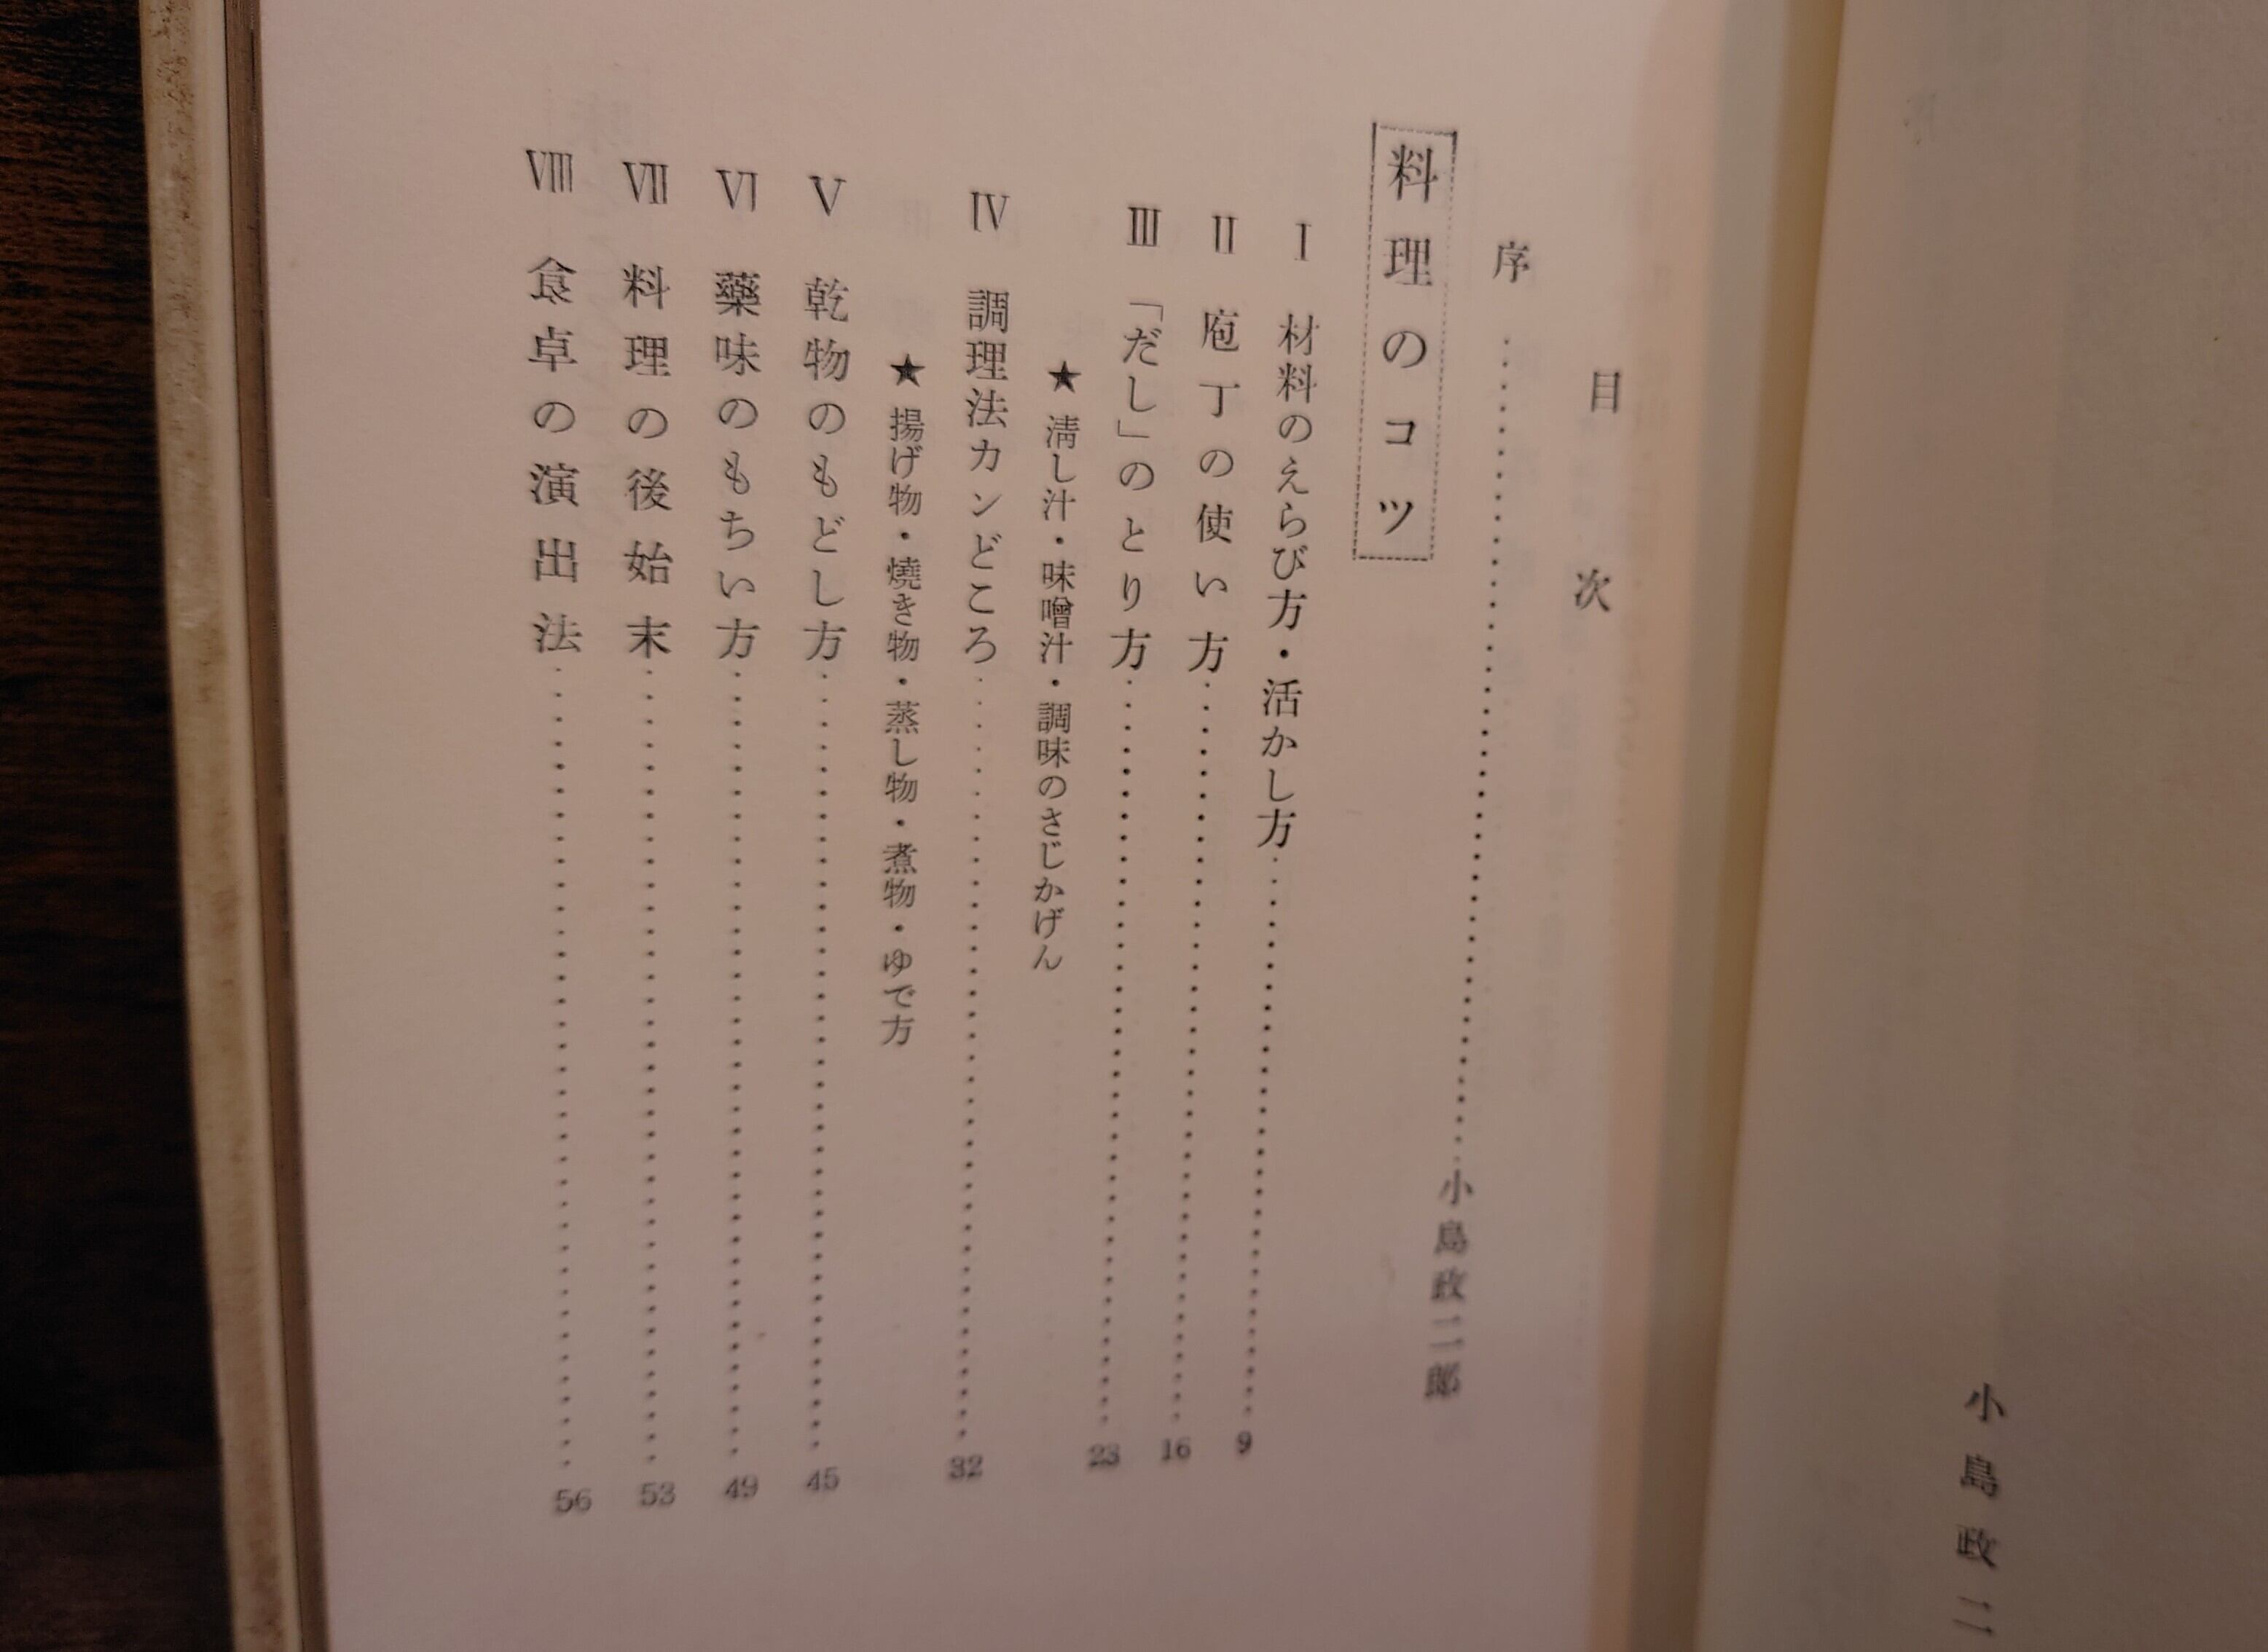 小島政二
目次
序……………………小島政二郎
料理のコツ
Ⅰ 材料のえらび方・活かし方……………………9
Ⅱ 庖丁の使い方……………………16
Ⅲ 「だし」のとり方……………………23
★ 淸し汁・味噌汁・調味のさじかげん
Ⅳ 調理法カンどころ……………………32
★ 揚げ物・燒き物・蒸し物・煮物・ゆで方
Ⅴ 乾物のもどし方……………………45
Ⅵ 藥味のもちい方……………………49
Ⅶ 料理の後始末……………………53
Ⅷ 食卓の演出法……………………56